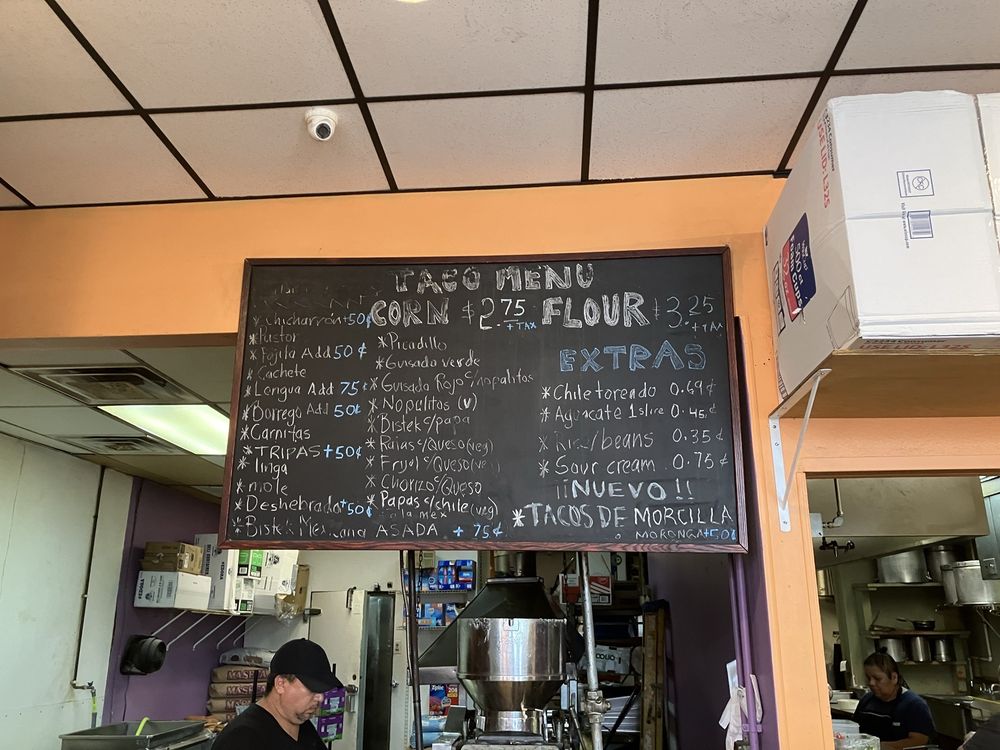 TACO MENU
CORN $2.75 + TAX FLOUR $3.25 + TAX
* Chicharrón +50¢
* Pastor
* Fajita Add 50¢
* Cachete
* Lengua Add 75¢
* Borrego Add 50¢
* Carnitas
* TRIPAS +50¢
* Tinga
* mole
* Deshebrada +50¢
* Bistek Mexicana ASADA + 75¢
* Picadillo
* Guisada verde
* Guisado Rojo c/nopalitos
* Nopalitos (v)
* Bistek c/papa
* Rajas c/Queso (veg)
* Frijol c/Queso (veg)
* Chorizo c/Queso
* Papas c/chile (veg)
EXTRAS
* Chile toreado 0.69¢
* Aguacate 1 slire 0.45¢
* Rice/beans 0.35¢
* Sour cream 0.75¢
¡¡NUEVO!!
* TACOS DE MORCILLA
MORONGA +50¢
MASECA
Ziploc